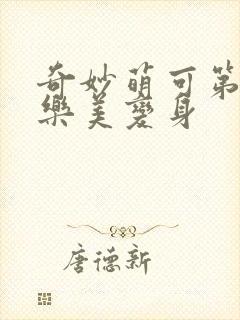 奇妙萌可第
樂美變身
唐德新